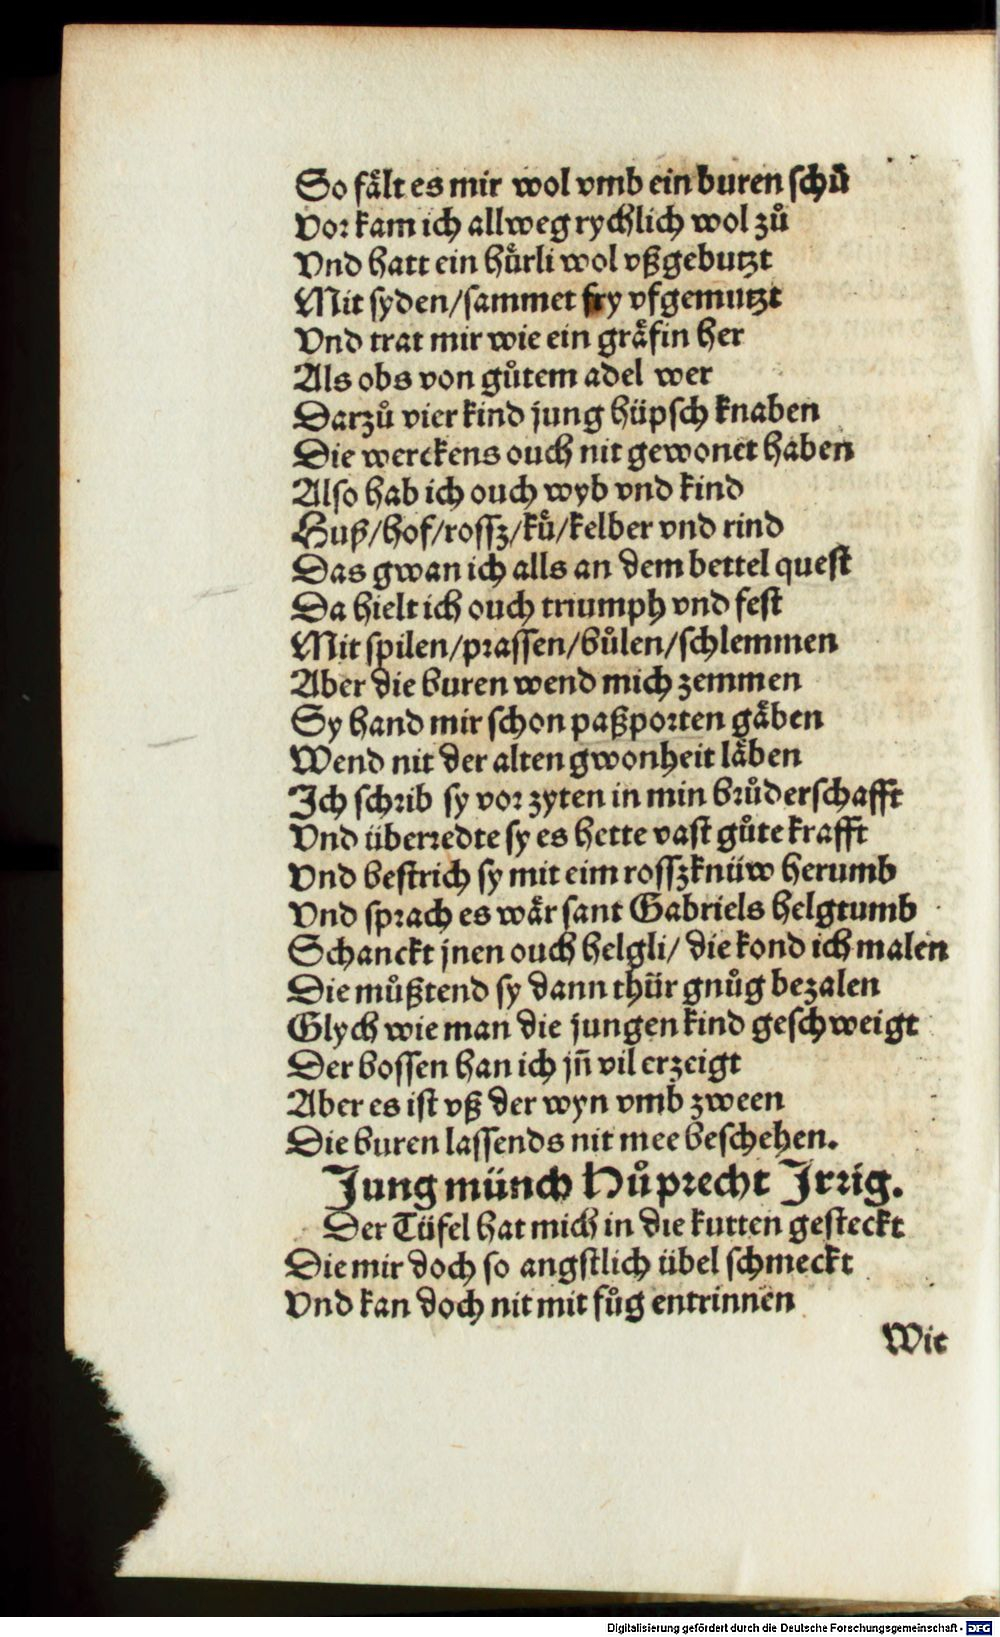 So fålt es mir wol vmb ein buren schů
Vor kam ich allweg rychlich wol zů
Vnd hatt ein hůrli wol vßgebutzt
Mit syden/sammet fry vfgemutzt
Vnd trat mir wie ein gräfin her
Als obs von gůtem adel wer
Darzů vier kind jung hüpsch knaben
Die werckens ouch nit gewonet haben
Also hab ich ouch wyb vnd kind
Huß/hof/rossz/ků/kelber vnd rind
Das gwan ich alls an dem bettel quest
Da hielt ich ouch triumph vnd fest
Mit spilen/prassen/bůlen/schlemmen
Aber die buren wend mich zemmen
Sy hand mir schon paßporten gäben
Wend nit der alten gwonheit läben
Ich schrib sy vor zyten in min brůderschafft
Vnd überredte sy es hette vast gůte krafft
Vnd bestrich sy mit eim rosszknüw herumb
Vnd sprach es wär sant Gabriels helgtumb
Schanckt jnen ouch helgli/ die kond ich malen
Die můßtend sy dann thür gnůg bezalen
Glych wie man die jungen kind geschweigt
Der bossen han ich jn̄ vil erzeigt
Aber es ist vß der wyn vmb zween
Die buren lassends nit mee beschehen.
Jung münch Růprecht Irrig.
Der Tüfel hat mich in die kutten gesteckt
Die mir doch so angstlich übel schmeckt
Vnd kan doch nit mit fůg entrinnen
Wie
Digitalisierung gefördert durch die Deutsche Forschungsgemeinschaft - DFG